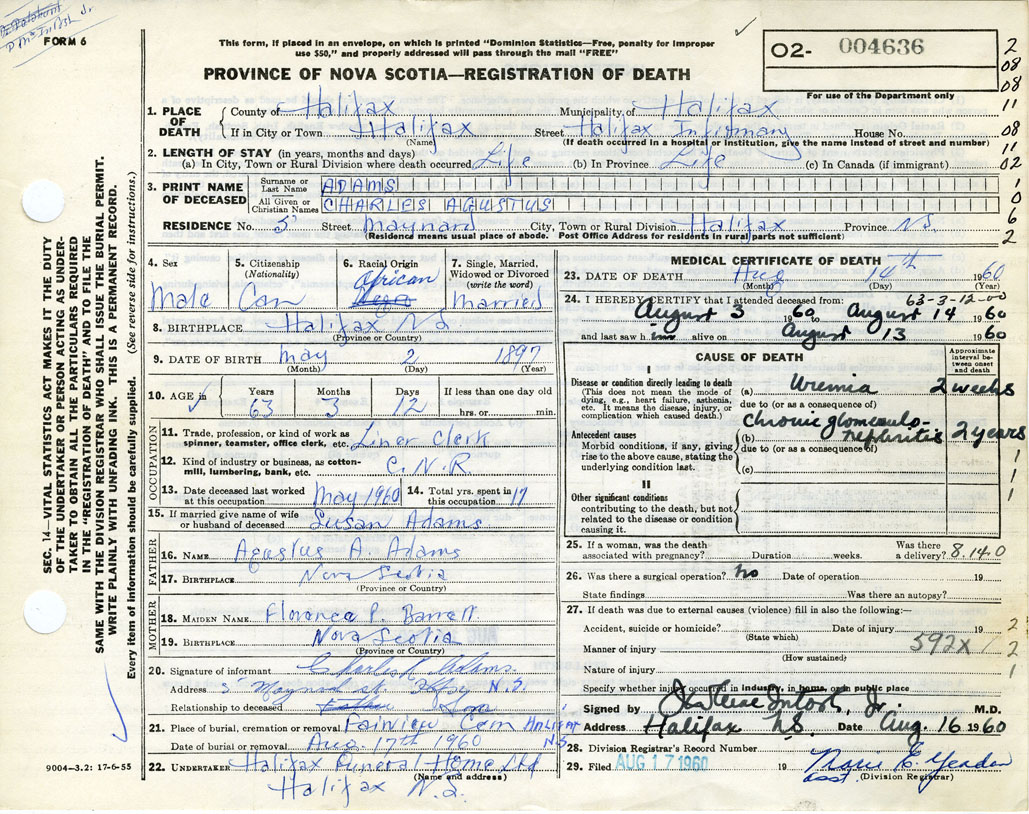 P McIntosh Jr
FORM 6
This form, if placed in an envelope, on which is printed "Dominion Statistics—Free, penalty for improper
use $50," and properly addressed will pass through the mail "FREE"
O2- 004636
For use of the Department only
PROVINCE OF NOVA SCOTIA—REGISTRATION OF DEATH
2
08
08
11
08
11
02
1
0
6
2
SEC. 14—VITAL STATISTICS ACT MAKES IT THE DUTY
OF THE UNDERTAKER OR PERSON ACTING AS UNDER-
TAKER TO OBTAIN ALL THE PARTICULARS REQUIRED
IN THE "REGISTRATION OF DEATH" AND TO FILE THE
SAME WITH THE DIVISION REGISTRAR WHO SHALL ISSUE THE BURIAL PERMIT.
WRITE PLAINLY WITH UNFADING INK. THIS IS A PERMANENT RECORD.
Every item of information should be carefully supplied. (See reverse side for instructions.)
1. PLACE OF DEATH
County of Halifax Municipality of Halifax
If in City or Town Halifax Street Halifax Infirmary House No.
(Name) (If death occurred in a hospital or institution, give the name instead of street and number)
2. LENGTH OF STAY (in years, months and days)
(a) In City, Town or Rural Division where death occurred Life (b) In Province Life (c) In Canada (if immigrant)
3. PRINT NAME OF DECEASED
Surname or Last Name ADAMS
All Given or Christian Names CHARLES AGUSTUS
RESIDENCE No. 5 Street Maynard City, Town or Rural Division Halifax Province N.S.
(Residence means usual place of abode. Post Office Address for residents in rural parts not sufficient)
4. Sex 5. Citizenship (Nationality) 6. Racial Origin 7. Single, Married, Widowed or Divorced (write the word)
Male Can African Married
8. BIRTHPLACE Halifax N.S.
(Province or Country)
9. DATE OF BIRTH May 2 1897
(Month) (Day) (Year)
10. AGE in Years Months Days If less than one day old
63 3 12 hrs. or min.
OCCUPATION
11. Trade, profession, or kind of work as
spinner, teamster, office clerk, etc. Liner Clerk
12. Kind of industry or business, as cotton-
mill, lumbering, bank, etc. C.N.R.
13. Date deceased last worked
at this occupation May 1960
14. Total yrs. spent in
this occupation 17
15. If married give name of wife
or husband of deceased Susan Adams
FATHER
16. NAME Agustus A. Adams
17. BIRTHPLACE Nova Scotia
(Province or Country)
MOTHER
18. MAIDEN NAME Florence P. Barrett
19. BIRTHPLACE Nova Scotia
(Province or Country)
20. Signature of informant Charles Adams
Address 5 Maynard St. Hfx N.S.
Relationship to deceased Son
21. Place of burial, cremation or removal Fairview Cem Halifax
Date of burial or removal Aug. 17th 1960 N.S
22. UNDERTAKER Halifax Funeral Home Ltd
(Name and address)
Halifax N.S.
9004—3.2: 17-6-55
MEDICAL CERTIFICATE OF DEATH
23. DATE OF DEATH Aug 14th 1960
(Month) (Day) (Year)
24. I HEREBY CERTIFY that I attended deceased from: 63-3-12-00
August 3 1960 to August 14 1960
and last saw him alive on August 13 1960
CAUSE OF DEATH
Approximate interval between onset and death
I
Disease or condition directly leading to death
(This does not mean the mode of
dying, e.g., heart failure, asthenia,
etc. It means the disease, injury, or
complication which caused death.)
(a) Uremia 2 weeks
due to (or as a consequence of)
Antecedent causes
Morbid conditions, if any, giving
rise to the above cause, stating the
underlying condition last.
(b) Chronic glomerulo-nephritis 2 years
due to (or as a consequence of)
(c)
1
1
1
II
Other significant conditions
contributing to the death, but not
related to the disease or condition
causing it.
25. If a woman, was the death
associated with pregnancy? Duration weeks. Was there
a delivery? 8.14.0
26. Was there a surgical operation? No Date of operation 19
State findings Was there an autopsy?
27. If death was due to external causes (violence) fill in also the following:—
Accident, suicide or homicide? Date of injury 19
(State which)
Manner of injury 592X
(How sustained)
Nature of injury
2
1
2
1
Specify whether injury occurred in industry, in home, or in public place
Signed by McIntosh, Jr. M.D.
Address Halifax N.S. Date Aug. 16 1960
28. Division Registrar's Record Number
29. Filed AUG 17 1960 19 Marie E. Yeadon
asst. (Division Registrar)